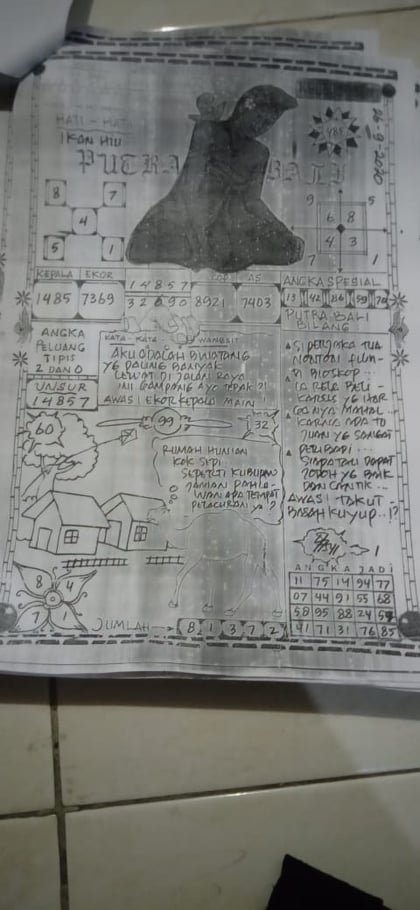 HATI - HATI
IKAN HIU
PUTRA BALI
485
16-9-2020
8 7
4
5 1
9 5
6 8
4 3
7 1
KEPALA EKOR
1485 7369
14857
32690
KOP AS
8921 7403
ANGKA SPESIAL
13 42 86 59 70
PUTRA BALI
BILANG
ANGKA
PELUANG
TIPIS
2 DAN 0
UNSUR
14857
KATA - KATA WANGSIT
AKU ADALAH BINATANG
YG PALING BANYAK
LEWAT DI JALAN RAYA
INI GAMPANG AYO TEBAK ?!
AWAS! EKOR KEPALA MAIN
SI PENJAKA TUA
NONTON FILM -
DI BIOSKOP ...
IA RELA BELI -
KARCIS YG HAR
GANYA MAHAL ...
KARNA ADA TU
JUAN YG SANGAT
PERIBADI ...
SIAPA TAU DAPAT
JODOH YG BAIK
DAN CANTIK ...
AWAS! TAKUT -
BASAH KUYUP ..!?
60
99
32
RUMAH HUNIAN
KOK SEPI
SEPERTI KUBURAN
TAMAN PAHLA-
WAN ADA TEMPAT
PELACURAN YA ?
8 4
7 1
JUMLAH 8 1 3 7 2
ANGKA JADI
11 75 14 94 77
07 44 91 55 68
58 95 88 24 57
41 71 31 76 85